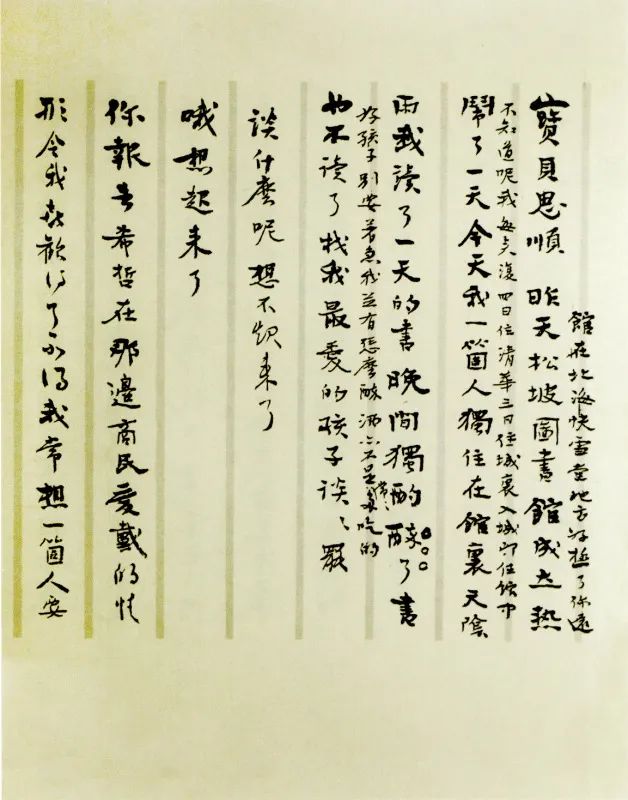 館在北海快雪堂地方好極了你還
寶貝思順 昨天松坡圖書館成立熱
不知道呢我每來復四日住清華三日住城裏入城即住館中
鬧了一天今天我一箇人獨住在館裏天陰
雨我讀了一天的書晚間獨酌醉了書
好孩子別要著急我並有怎麼醉酒亦不是常常多吃的
也不讀了找我最愛的孩子談、罷
談什麼呢 想不起來了
哦想起來了
你報告希哲在那邊商民愛戴的情
形令我喜歡得了不得我常想一箇人要